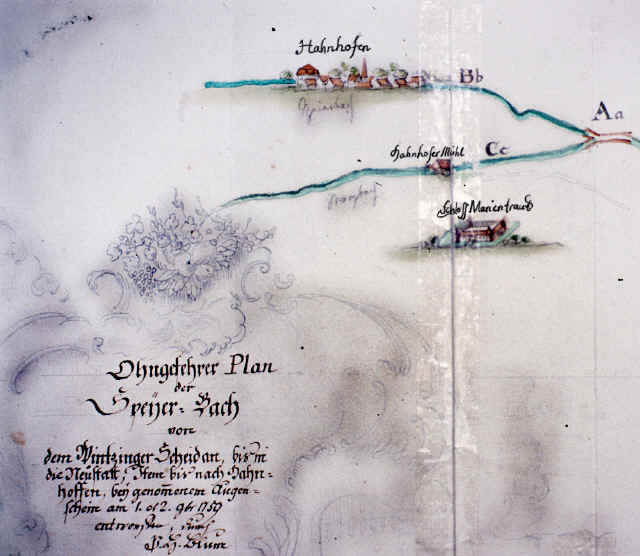 Hahnhofen
Bb
Aa
Hahnhofer Mühl
Cc
Schloss Marientraud
Ohngefehrer Plan
der
Speÿer-Bach
von
dem Wintzinger Scheidan, bis in
die Neustatt, Item bis nach Hahn-
hoffen, beÿ genomenem Augen-
schein am 1. et 2. 9br 1759
entworfen, durch